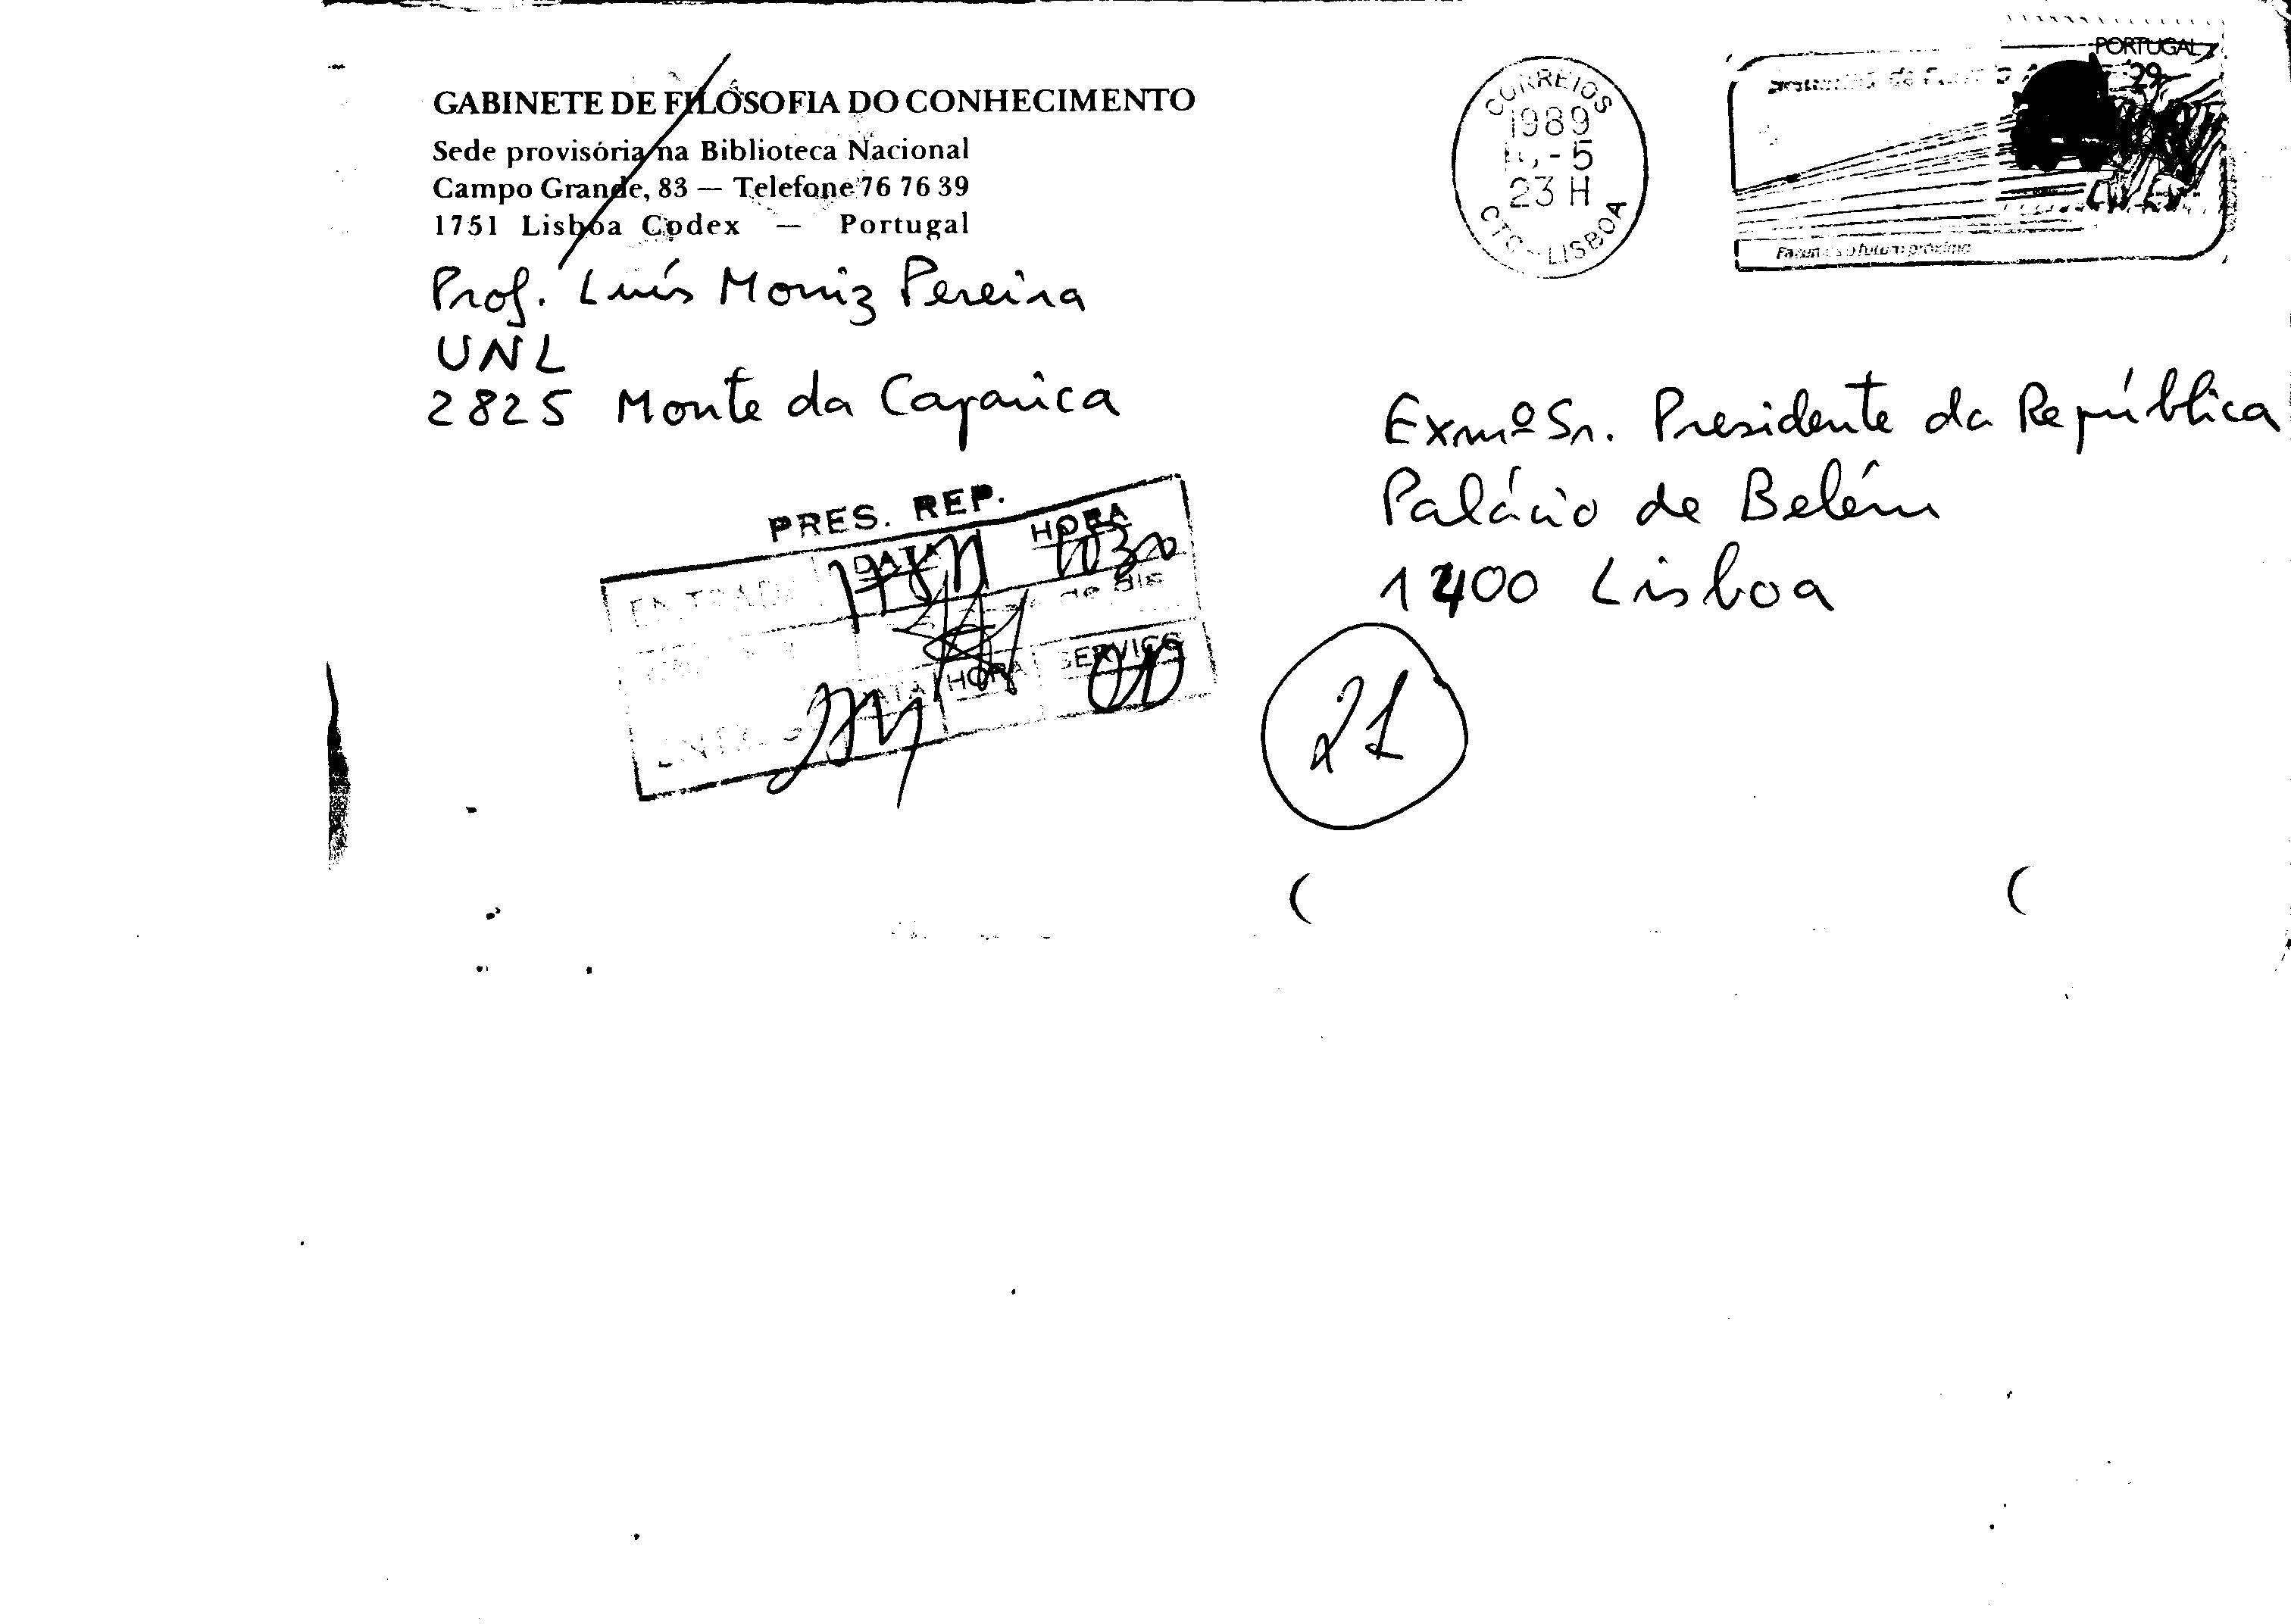 GABINETE DE FILOSOFIA DO CONHECIMENTO
Sede provisória na Biblioteca Nacional
Campo Grande, 83 — Telefone 76 76 39
1751 Lisboa Codex — Portugal
Prof. Luís Moniz Pereira
UNL
2825 Monte da Caparica
CORREIOS
1989
-5
23 H
CTC - LISBOA
PORTUGAL
29
Exmº Sr. Presidente da República
Palácio de Belém
1400 Lisboa
PRES. REP.
ENTRADA DATA HORA
DATA HORA SERVIÇO
21